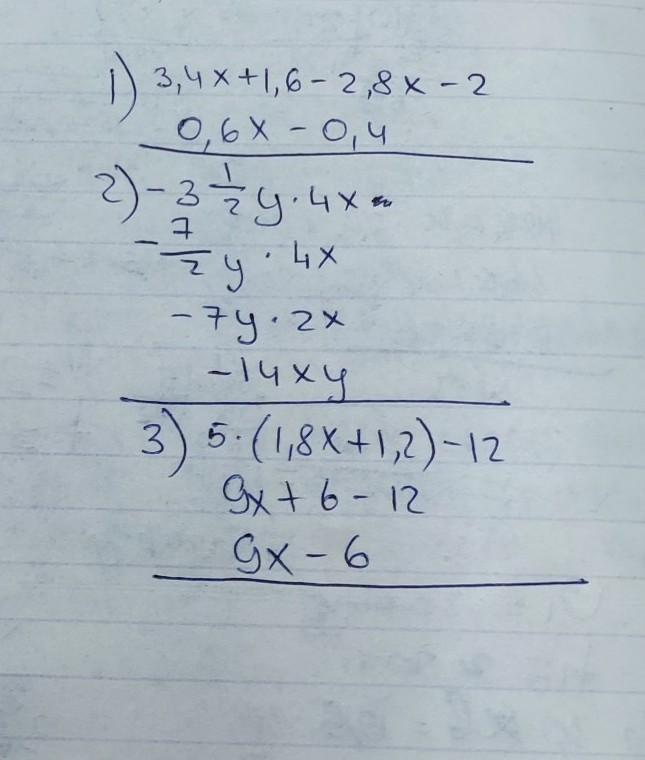 1) 3,4x+1,6-2,8x-2
0,6x-0,4
2) -3 1/2 y·4x
-7/2 y·4x
-7y·2x
-14xy
3) 5·(1,8x+1,2)-12
9x+6-12
9x-6